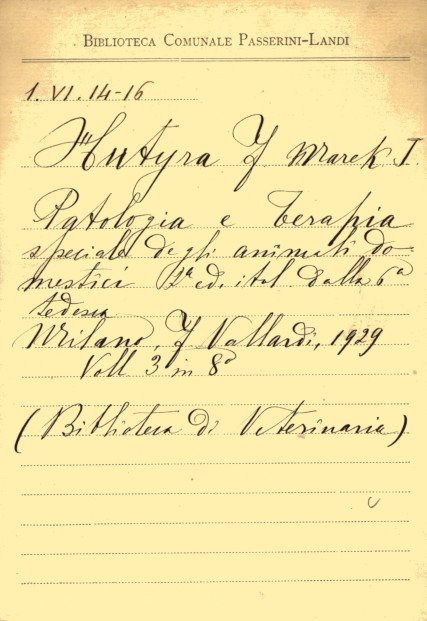 BIBLIOTECA COMUNALE PASSERINI-LANDI
1. VI. 14-16
Hutyra F Marek J.
Patologia e terapia
speciale degli animali do-
mestici 1ª ed. ital. dalla 6ª
tedesca
Milano, F Vallardi, 1929
Voll 3 in 8º
(Biblioteca di Veterinaria)